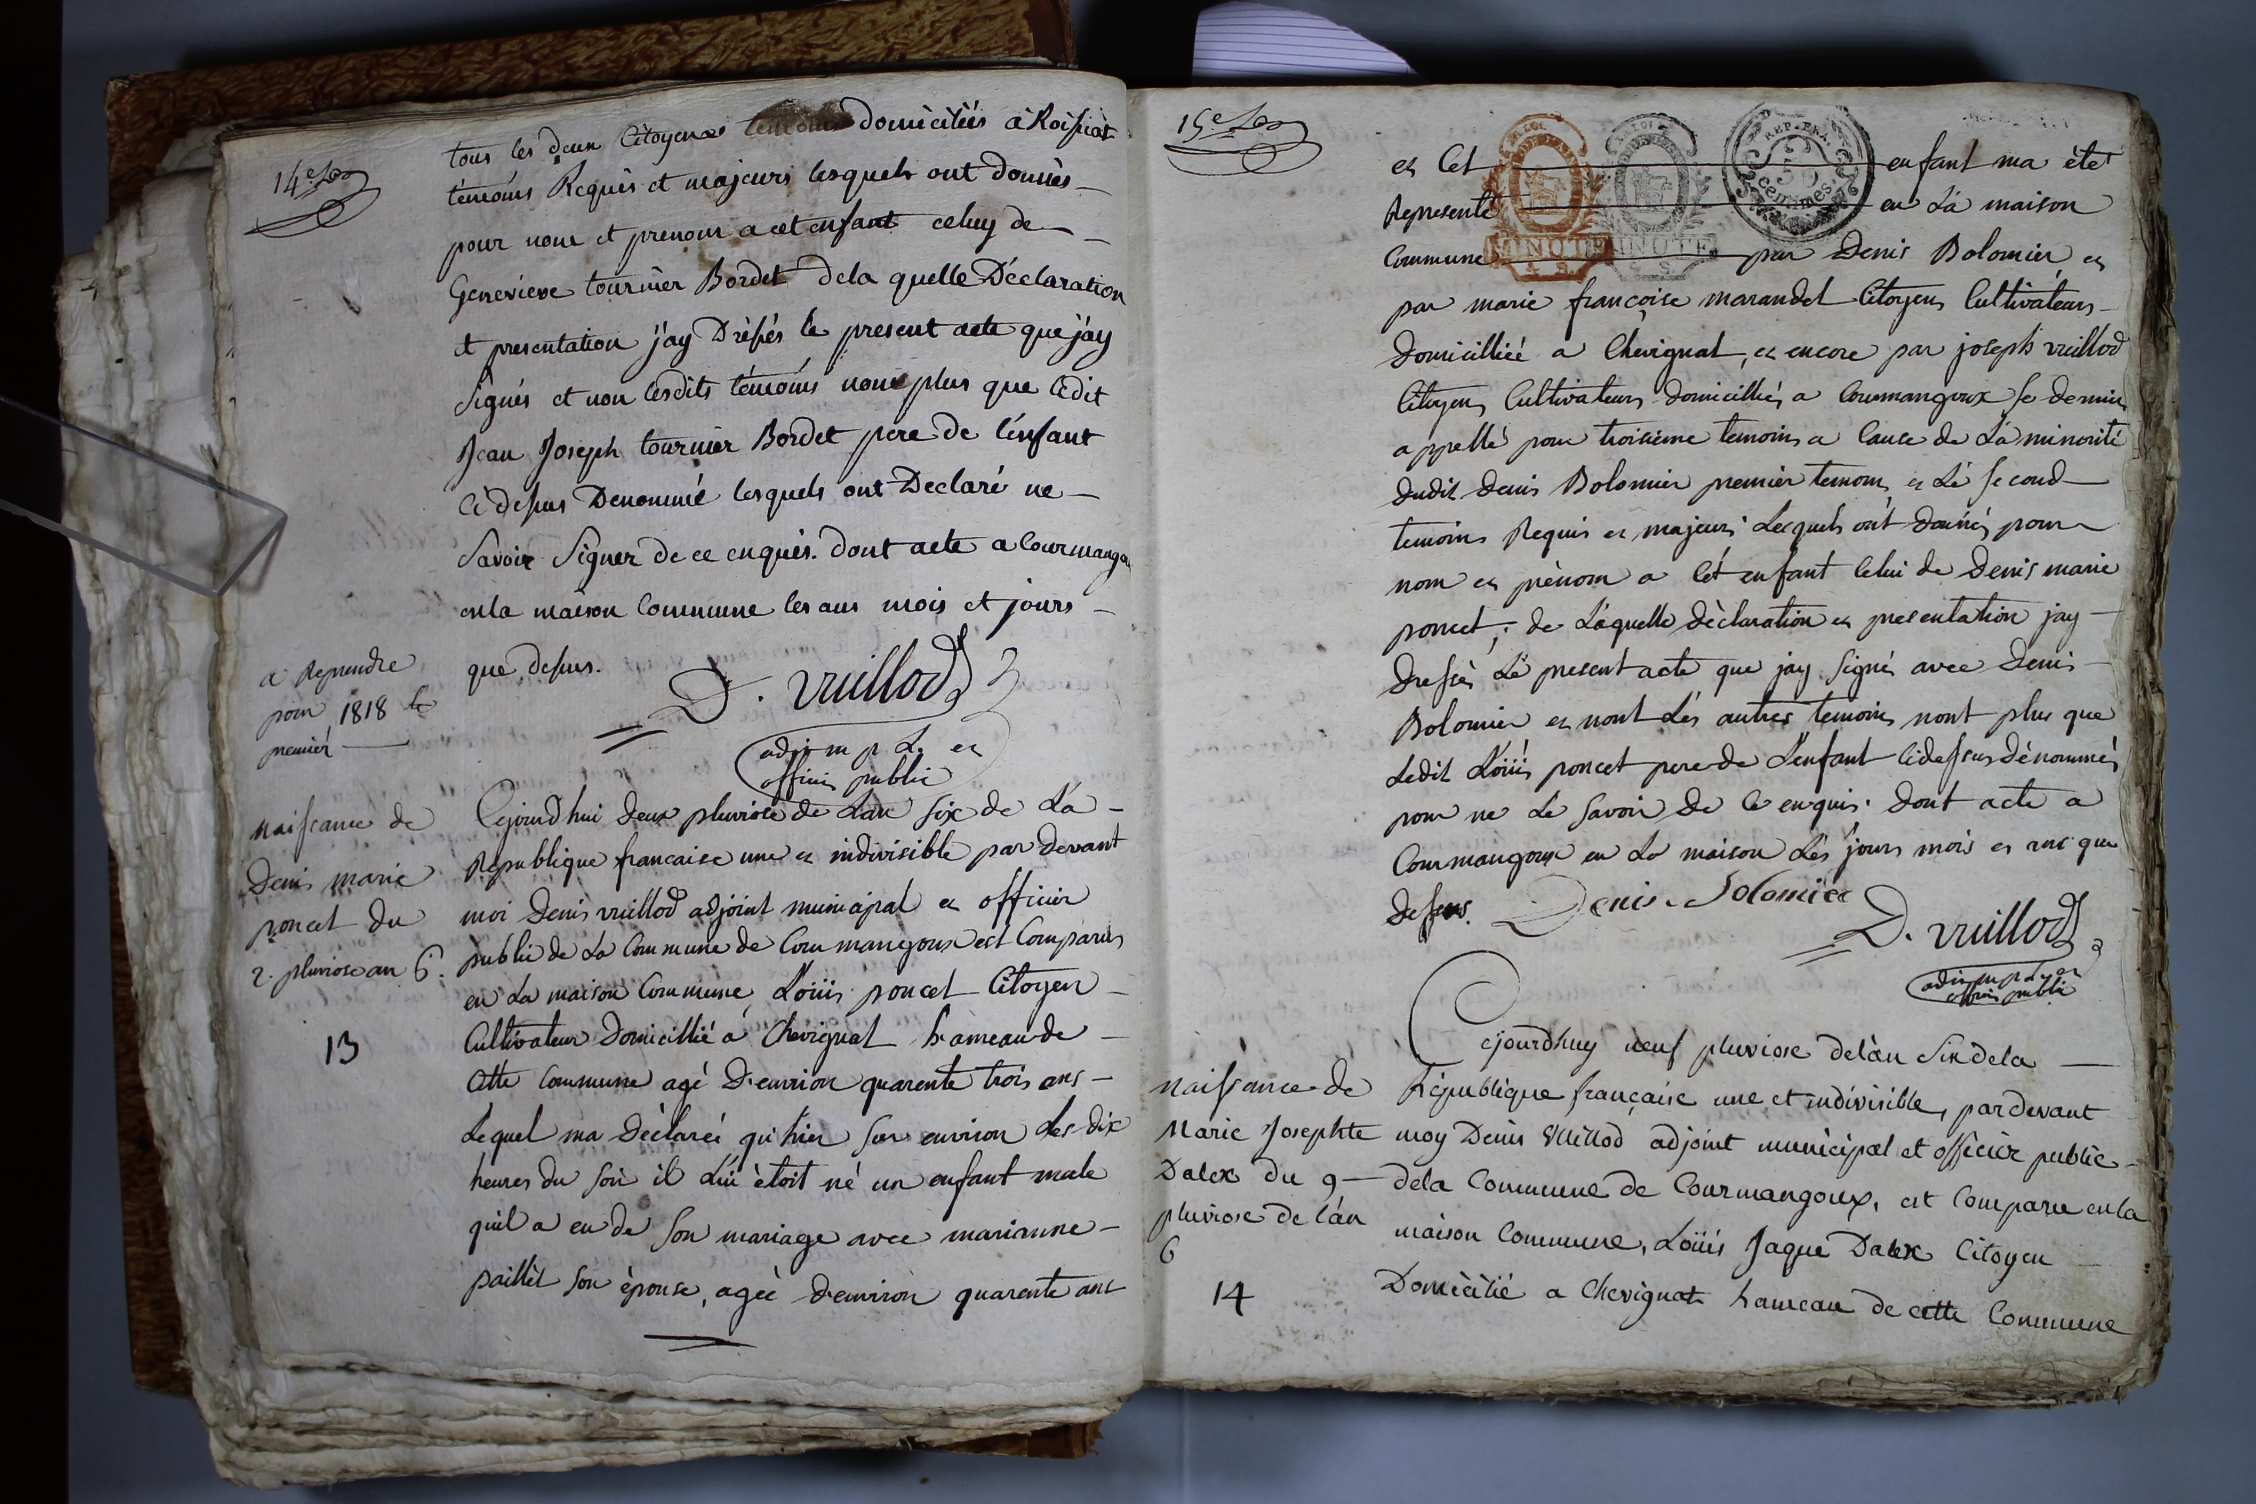 14e
tous les deux Citoyens témoins domiciliés à Roissiat
témoins Requis et majeurs lesquels ont donnés
pour nom et prenom a cet enfant celuy de
Genevieve tournier Bordet dela quelle Déclaration
et presentation j'ay Dressés le present acte que j'ay
Signés et non lesdits témoins nom plus que ledit
Jean Joseph tournier Bordet pere de l'enfant
Cidessus Denommé lesquels ont Declaré ne
Savoir Signer de ce enquis. dont acte a Courmangou
en la maison Commune les ans mois et jours
que dessus.
D. vuillod
adj. m. p. L. et
officier public
a Reprendre
pour 1818 le
premier
Naissance de
Denis marie
poncet du
2. pluviose an 6.
13
Cejourdhui deux pluviose de Lan six de Lá
Republique francaise une et indivisible par devant
moi Denis vuillod adjoint municipal et officier
public de La Commune de Courmangoux est Comparus
en La maison Commune, Loüis poncet Citoyen
Cultivateur Domicillié a Chevignat hameau de
Cette Commune agé D'environ quarente trois ans
Lequel ma Déclaréé qu'hier sur environ Les dix
heures du soir il Lui étoit né un enfant male
quil a eu de Son mariage avec marianne
paillet son épouse, agéé d'environ quarente ans
15e
et Cet enfant ma été
Representé en Lá maison
Commune par Denis Bolomier et
par marie françoise marandet Citoyens Cultivateurs
domicilliéé a Chevignat, et encore par joseph vuillod
Citoyens Cultivateurs domicilliés a Courmangoux se dernier
appellé pour troisieme temoins a Cause de Lá minorité
dudit Denis Bolomier premier temoins, et Lé second
temoins Requis et majeurs Lesquels ont donnés pour
nom et prènom a Cét enfant Celui de Denis marie
poncet; de Láquelle dèclaration et presentation jay
dressés Lé present acte que jay Signé avec Denis
Bolomier et nont Lés autres temoins nont plus que
Ledit Loüis poncet pere de L'enfant Cidessus dénommés
pour ne Le Savoir De Ce enquis. Dont acte a
Courmangoux en La maison Lés jours mois et ans que
dessus.
Denis Bolomier
D. vuillod
adj. m. p. L. et
officier public
REP. FRA.
50
centimes.
MINUTE
MINUTE
Naissance de
Marie Josephte
Dalex du 9
pluviose de l'án
6
14
Cejourdhuy neuf pluviose de l'an Six de la
République française une et indivisible, pardevant
moy Denis Vuillod adjoint municipal et officier public
dela Commune de Courmangoux, est Comparu en la
maison Commune, Loüis Jaque Dalex Citoyen
Domicilié a Chevignat hameau de cette Commune